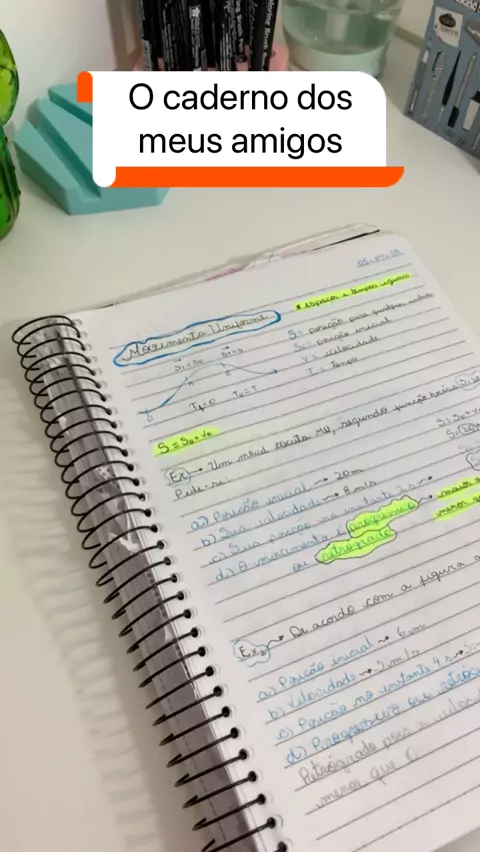 O caderno dos
meus amigos
Movimento Uniforme
* espaços e tempos iguais
S = posição para qualquer
S₀ = posição inicial
V = velocidade
T = Tempo
S = S₀ + V₀
Ex → Um móvel escita MU, segundo função horária
Pede-se:
a) Posição inicial → 20m
b) Sua velocidade → 8 m/s
c) Sua posição no instante 2 s →
d) O movimento é progressivo
ou retrógrado
Ex₂ → De acordo com a figura a
a) Posição inicial → 6m
b) Velocidade → 2 m/s
c) Posição no instante 4 s →
d) Progressivo ou retróg
Retrógrado pois a veloc
menor que